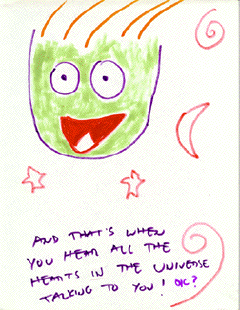 AND THAT'S WHEN
YOU HEAR ALL THE
HEARTS IN THE UNIVERSE
TALKING TO YOU! OK?